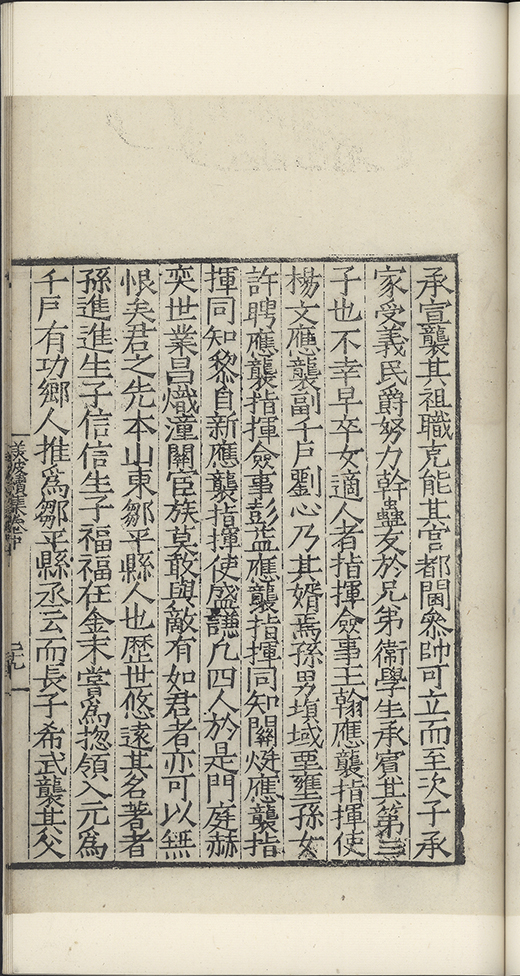 承宣襲其祖職克能其官都閫叅帥可立而至次子承
家受義民爵努力幹蠱友於兄弟衞學生承賔其第三
子也不幸早卒女適人者指揮僉事王翰應襲指揮使
楊文應襲副千戶劉心乃其婿焉孫男塤域堊壅孫女
許聘應襲指揮僉事彭盍應襲指揮同知關煃應襲指
揮同知黎自新應襲指揮使盛謙凡四人於是門庭赫
奕世業昌熾潼關官族莫敢與敵有如君者亦可以無
恨矣君之先本山東鄒平縣人也歷世悠遠其名著者
孫進進生子信信生子福福在金末嘗爲揔領入元爲
千戶有功鄉人推爲鄒平縣丞云而長子希武襲其父
渼陂續集卷中
二九